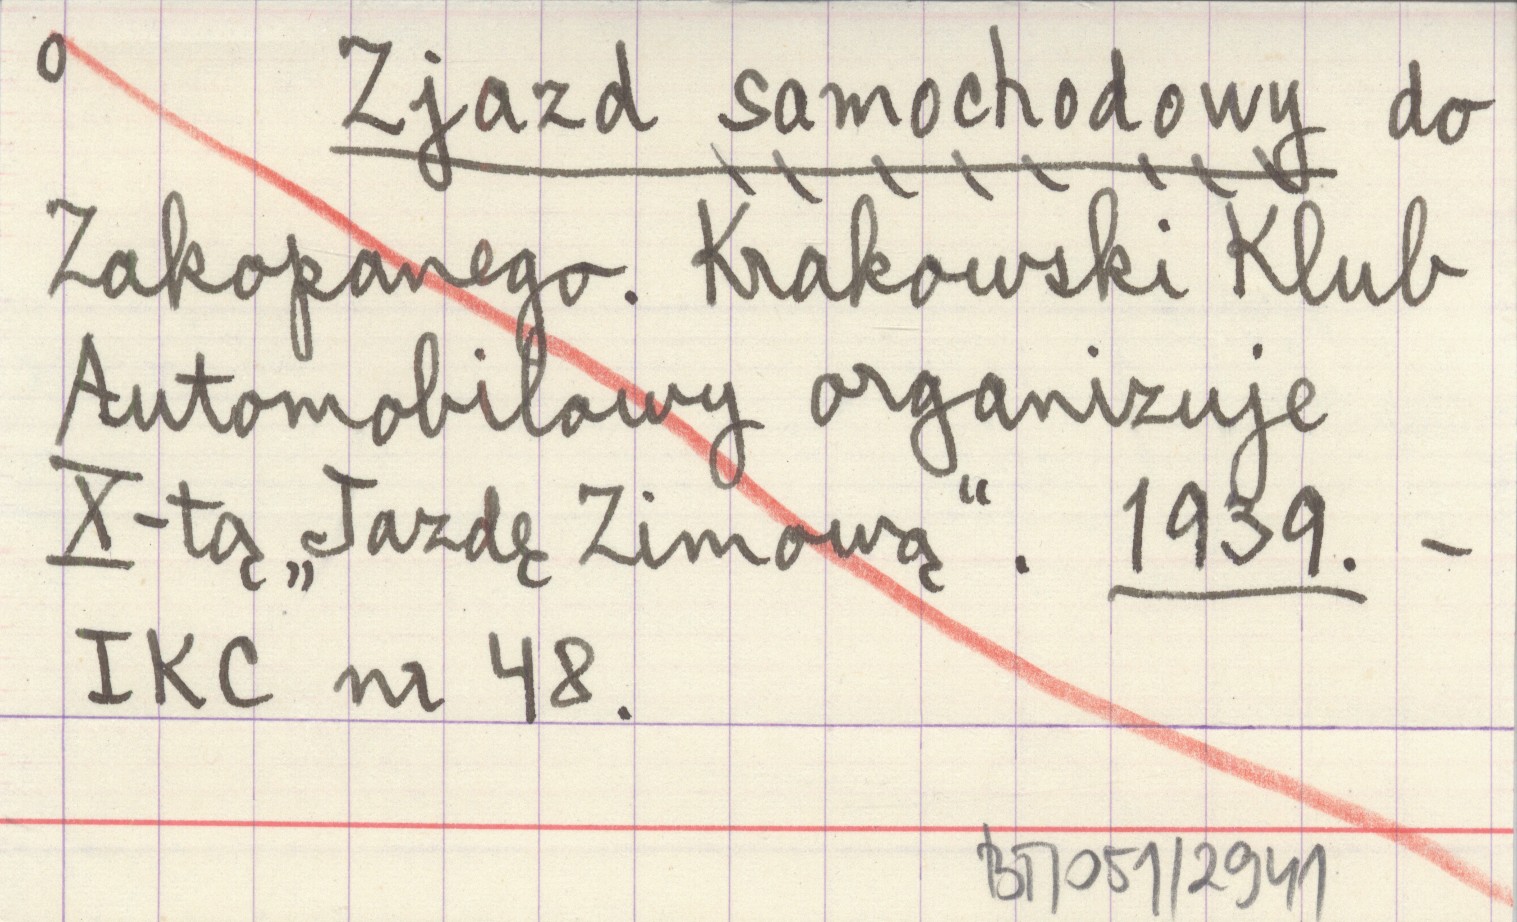 o Zjazd samochodowy do
Zakopanego. Krakowski Klub
Automobilowy organizuje
X-tą „Jazdę Zimową“. 1939. –
IKC nr 48.
BT/051/2941